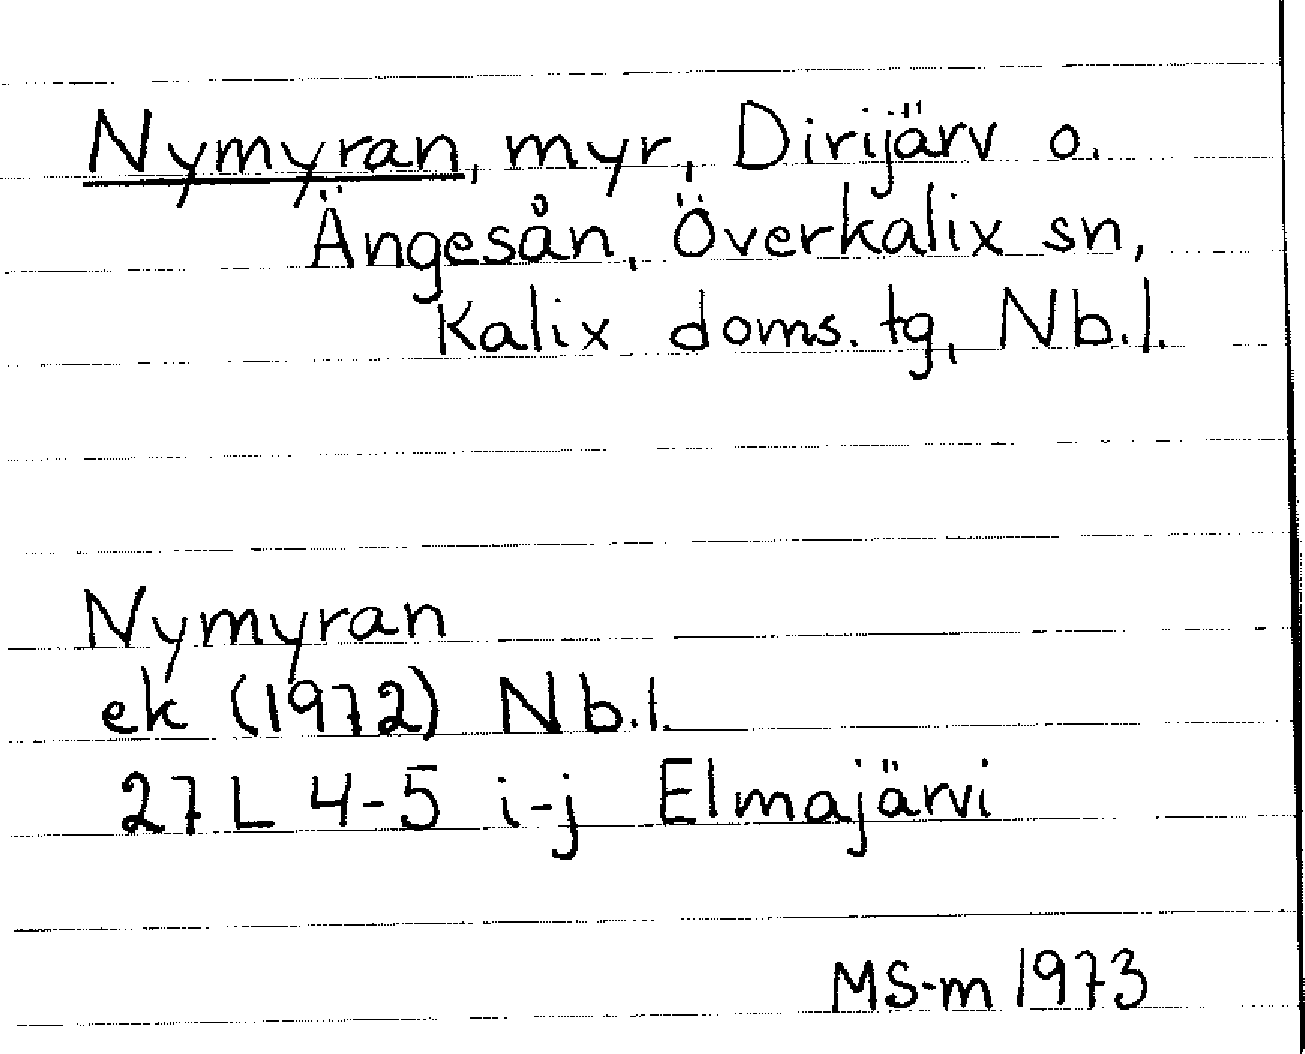 Nymyran, myr, Dirijärv o.
Ängesån, Överkalix sn,
Kalix doms. tg, Nb.l.
Nymyran
ek (1972) Nb.l.
27 L 4-5 i-j Elmajärvi
MS-m 1973